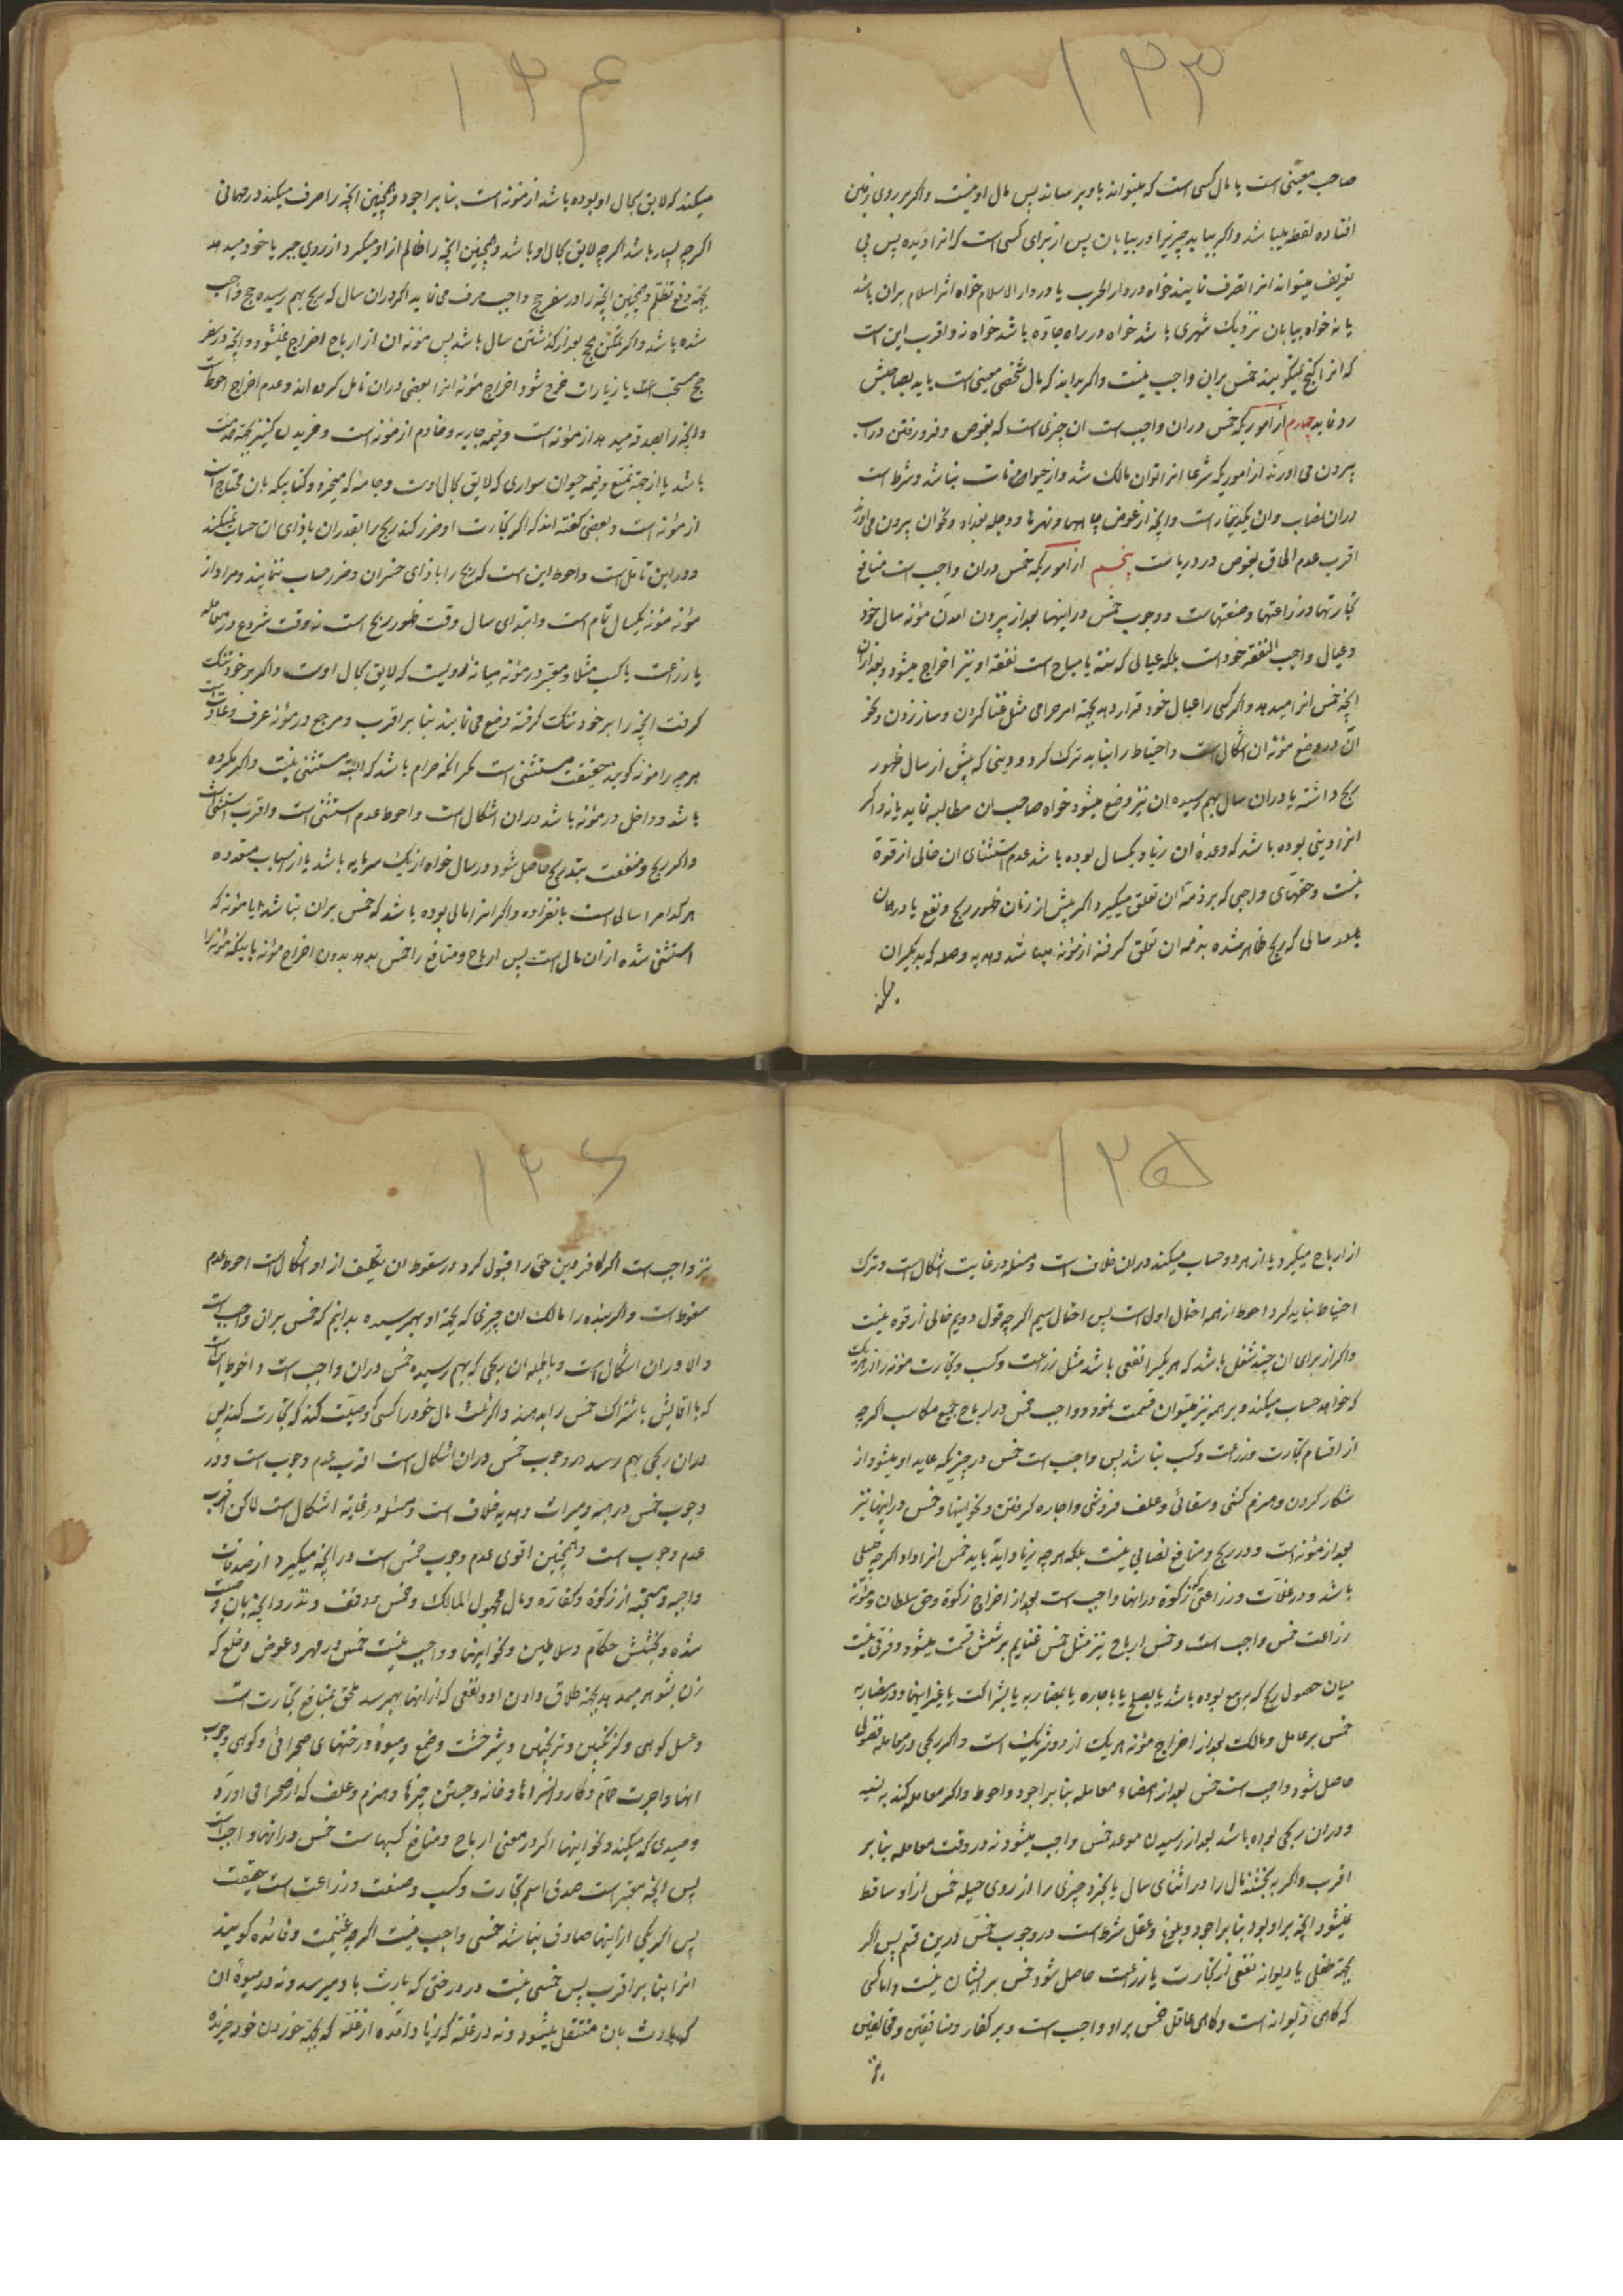 ۱۳۳
صاحب معینی است یا مال کسی است که میتواند باو برساند پس مال او نیست واکر بر روی زمین
افتاده لقطه میباشد واکر بیابد چیزیرا در بیابان پس از برای کسی است که انرا دیده پس بی
تعریف میتواند انرا تصرف نماید خواه در دار الحرب یا در دار الاسلام خواه اثر اسلام بران باشد
یا نه خواه بیابان نزدیک شهری باشد خواه در راه جادّه باشد خواه نه واقرب این است
که انرا کنج نمیکویند خمس بران واجب نیست واکر بداند که مال شخص معینی است باید بصاحبش
رد نماید چهارم از اموریکه خمس دران واجب است ان چیزی است که بغوص وفرو رفتن در اب
بیرون می اورند از اموریکه شرعا انرا توان مالک شد واز حیوانات نباشد وشرط است
دران نصاب وان یکدینار است وانچه از غوص چاهها ونهرها ودجله بغداد ونحو ان بیرون می اورند
اقرب عدم الحاق بغوص در دریا است پنجم از اموریکه خمس دران واجب است منافع
تجارتها وزراعتها وصنعتهاست ووجوب خمس دراینها بعد از بیرون امدن مؤنه سال خود
وعیال واجب النفقه خود است بلکه عیالی که سنة یا مباح است نفقه او نیز اخراج میشود وبعد ازان
انچه خمس انرا میدهد واکر کسی را عیال خود قرار دهد بجهة امر حرامی مثل غنا کردن وساز زدن ونحو
ان در وضع مؤنه ان اشکال است واحتیاط را نباید ترک کرد ودینی که پیش از سال ظهور
ربح داشته یا دران سال بهم رسیده ان نیز وضع میشود خواه صاحب ان مطالبه نماید یا نه واکر
انرا دینی بوده باشد که وعده ان زیاد یکسال بوده باشد عدم استثنای ان خالی از قوة
نیست وحقهای واجبی که بر ذمّه ان تعلق میکیرد اکر پیش از زمان ظهور ربح ونفع یا در همان
سالی که ربح ظاهر شده بذمه ان تعلق کرفته از مؤنه میباشد وهدیه وصله که بدیکران
میکند
۱۳۴
میکند که لایق بحال او بوده باشد از مؤنه است بنا بر اجود وهمچنین انچه را صرف میکند در مهمانی
اکرچه بسیار باشد اکرچه لایق بحال او باشد وهمچنین انچه را ظالم از او میکیرد از روی جبر یا خود میدهد
بجهة دفع تظلم وهمچنین انچه را در سفر حج واجب صرف می نماید اکر دران سال که ربح بهم رسیده حج واجب
شده باشد واکر تمکن حج بعد از کذشتن سال باشد پس مؤنه ان از ارباح اخراج نمیشود وانچه در سفر
حج مستحب یا زیارات خرج شود اخراج مؤنه انرا بعضی دران تامل کرده اند وعدم اخراج احوط است
وانچه را بصدقه میدهد از مؤنه است وقیمة جاریه وخادم از مؤنه است وخریدن کنیز بجهة خدمت
باشد یا از جهة تمتع وقیمه حیوان سواری که لایق بحال اوست وجامه که میخرد وکتابیکه بان محتاج است
از مؤنه است وبعضی کفته اند که اکر تجارت او ضرر کند ربح را بقدر ان باذای ان حساب میکند
ودراین تامّل است واحوط این است که ربح را باذای خسران وضرر حساب ننمایند ومراد از
مؤنه مؤنه یکسال تمام است وابتدای سال وقت ظهور ربح است نه وقت شروع در معامله
یا زراعت یا کسب مثلا ومعتبر در مؤنه میانه رویست که لایق بحال اوست واکر بر خود تنک
کرفت انچه را بر خود تنک کرفته وضع می نمایند بنا بر اقرب ومرجع در مؤنه عرف وعادت است
هرچه را مؤنه کویند حقیقت مستثنی است مکر انکه حرام باشد که البته مستثنی نیست واکر مکروه
باشد وداخل در مؤنه باشد دران اشکال است واحوط عدم استثنی است واقرب استثنی است
واکر ربح ومنفعت بتدریج حاصل شود در سال خواه از یک سرمایه باشد یا از مهاب متعدده
هرکدام را سالی است بانفراده واکر انرا مالی بوده باشد که خمس بران نباشد ایا مؤنه که
استثنی شده از ان مال است پس ارباح ومنافع را خمس بدهد بدون اخراج مؤنه یا اینکه مؤنه را
۱۳۵
از ارباح میکیرد یا از هردو حساب میکند دران خلاف است ومسئله در غایت اشکال است وترک
احتیاط نباید کرد احوط از همه احتمال اول است پس احتمال سیم اکرچه قول دویم خالی از قوه نیست
واکر از برای ان چند شغل باشد که هر یکیرا نفعی باشد مثل زراعت وکسب وتجارت مؤنه را از هریک
که خواهد حساب میکند وبر همه نیز میتوان قسمت نمود وواجب خمس در ارباح جمیع مکاسب اکرچه
از اقسام تجارت وزراعت وکسب نباشد پس واجب است خمس در چیزیکه عاید او میشود از
شکار کردن وهیزم کشی وسقائی وعلف فروشی واجاره کرفتن ونحو اینها وخمس دراینها نیز
بعد از مؤنه است ودر ربح ومنافع نصابی نیست بلکه هرچه زیاد اید باید خمس انرا داد اکرچه خیلی
باشد ودر غلّات وزراعتی که زکوة درانها واجب است بعد از اخراج زکوة وحق سلطان ومؤنه
زراعت خمس واجب است وخمس ارباح نیز مثل خمس غنایم بر شش قسمت میشود وفرقی نیست
میان حصول ربح که به بیع بوده باشد یا بصلح یا باجاره یا بمضاربه یا بشراکت یا غیر اینها ودر مضاربه
خمس بر عامل ومالک بعد از اخراج مؤنه هریک از دو شریک است واکر ربحی در معامله فضولی
حاصل شود واجب است خمس بعد از امضاء معامله بنا بر اجود واحوط واکر معامله کند به نسیه
ودران ربحی بوده باشد بعد از رسیدن موعد خمس واجب میشود نه در وقت معامله بنا بر
اقرب واکر به بخشند مال را در اثنای سال یا بخرد چیزی را از روی حیله خمس از او ساقط
نمیشود انچه بر او بود بنا بر اجود وبلوغ وعقل شرط است در وجوب خمس درین قسم پس اکر
بجهة طفلی یا دیوانه نفعی از تجارت یا زراعت حاصل شود خمس بر ایشان نیست واما کسی
که کاهی دیوانه است وکاهی عاقل خمس بر او واجب است وبر کفار ومنافقین ومخالفین
نیز
۱۳۶
نیز واجب است اکر کافر دین حق را قبول کرد در سقوط ان تکلیف از او اشکال است احوط عدم
سقوط است واکر بنده را مالک ان چیزی که بجهة او بهم رسیده بدانیم که خمس بران واجب است
والا دران اشکال است وبالجمله ان ربحی که بهم رسیده خمس دران واجب است واحوط این است
که با اقایش باشتراک خمس را بدهند واکر ثلث مال خود را کسی وصیّت کند که تجارت کنند پس
دران ربحی بهم رسد در وجوب خمس دران اشکال است اقرب عدم وجوب است ودر
وجوب خمس در هبه ومیراث وهدیه خلاف است ومسئله در غایة اشکال است لاکن اقرب
عدم وجوب است وهمچنین اقوی عدم وجوب خمس است در انچه میکیرد از صدقات
واجبه ومستحبّه از زکوة وکفاره ومال مجهول المالک وخمس ووقف ونذر وانچه بان وصیت
شده وبخشش حکّام وسلاطین ونحو اینها وواجب نیست خمس در مهر وعوض وخلع که
زن بشوهر میدهد بجهة طلاق دادن او ونفعی که از انها بهم رسد ملحق بمنافع تجارت است
وعسل کوهی وکزنکبین وترنجبین وشیرخشت وصمغ ومیوه درختهای صحرائی وکوهی وچوب
انها واجرت حمّام وکاروانسراها وخانه وجستن چیزها وهیزم وعلف که از صحرا می اورد
وصیدی که میکند ونحو اینها اکر در معنی ارباح ومنافع کسبهاست خمس درانها واجب است
پس انچه معتبر است صدق اسم تجارت وکسب وصنعت وزراعت است حقیقت
پس اکر یکی از اینها صادق نباشد خمسی واجب نیست اکرچه غنیمت وفائده کویند
انرا بنا بر اقرب پس خمسی نیست در درختی که بارث باو میرسد ونه در میوه ان
که بارث بان منتقل میشود ونه در غلّه که زیاد امده از غلّه که بجهة خوردن خود خریده